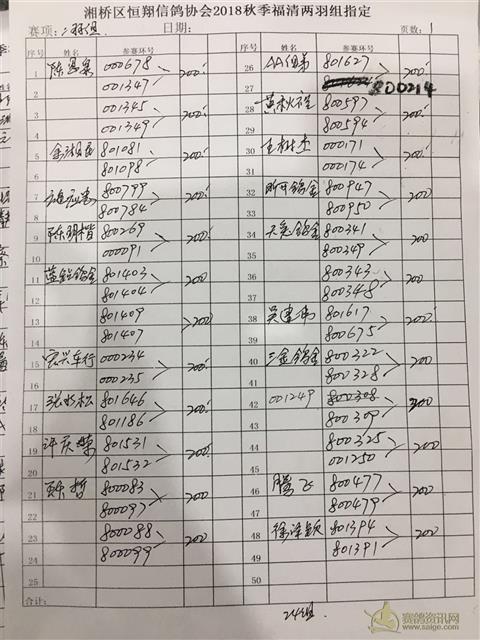 湘桥区恒翔信鸽协会2018秋季福清两羽组指定
赛项: 二羽组 日期: 页数: 1
序号 姓名 参赛环号 序号 姓名 参赛环号
1 000678 200 26 AA组弟 801627 200
2 001347 27 800214
3 001345 200 28 800597 200
4 001349 29 800594
5 801081 200 30 000171 200
6 801098 31 000174
7 800799 200 32 800947 200
8 800784 33 800950
9 陈明楷 800269 200 34 800341 200
10 000091 35 800349
11 801403 200 36 800343 200
12 801404 37 800348
13 801409 200 38 801617 200
14 801407 39 800675
15 宏兴车行 000234 200 40 三金鸽舍 800322 200
16 000235 41 800328
17 张水松 801646 200 42 001249 800308 200
18 801186 43 800309
19 801531 200 44 800325 200
20 801532 45 001250
21 陈哲 800083 200 46 腾飞 800477 200
22 800097 47 800479
23 800088 200 48 801394 200
24 800099 49 801391
25 50
合计:
24组
赛鸽资讯网
www.saige.com